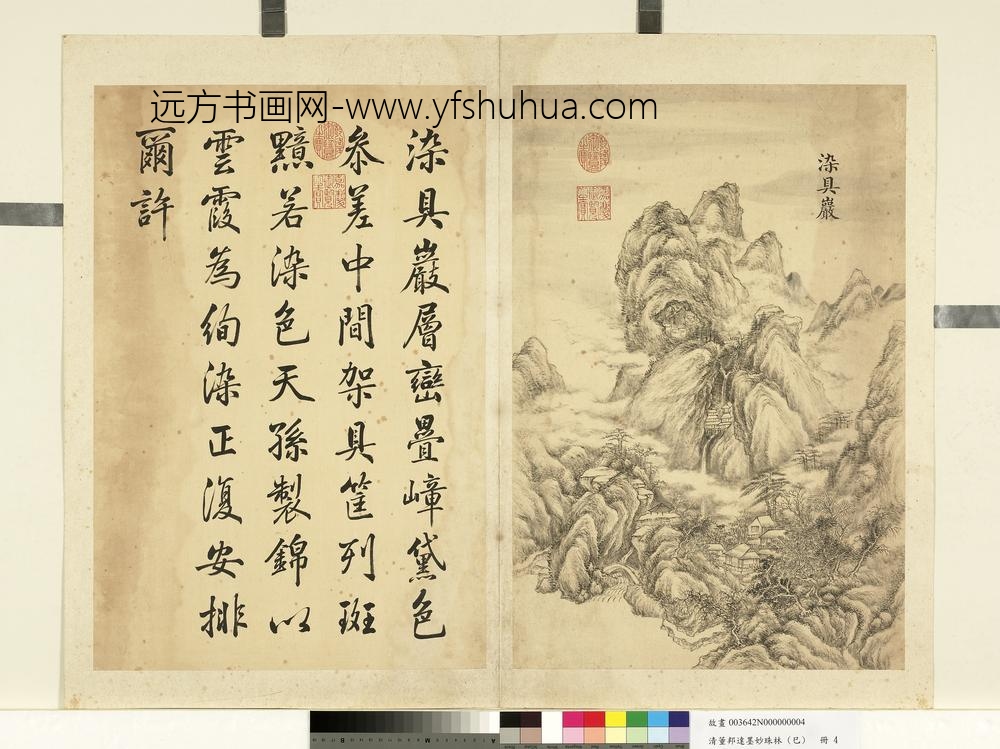 远方书画网-www.yfshuhua.com
染具巖
染具巖層巒疊嶂黛色
叅差中間架具筐列斑
黵若染色天孫製錦以
雲霞為絢染正復安排
爾許
故畫 003642N000000004
清董邦達墨妙珠林（巳） 冊 4